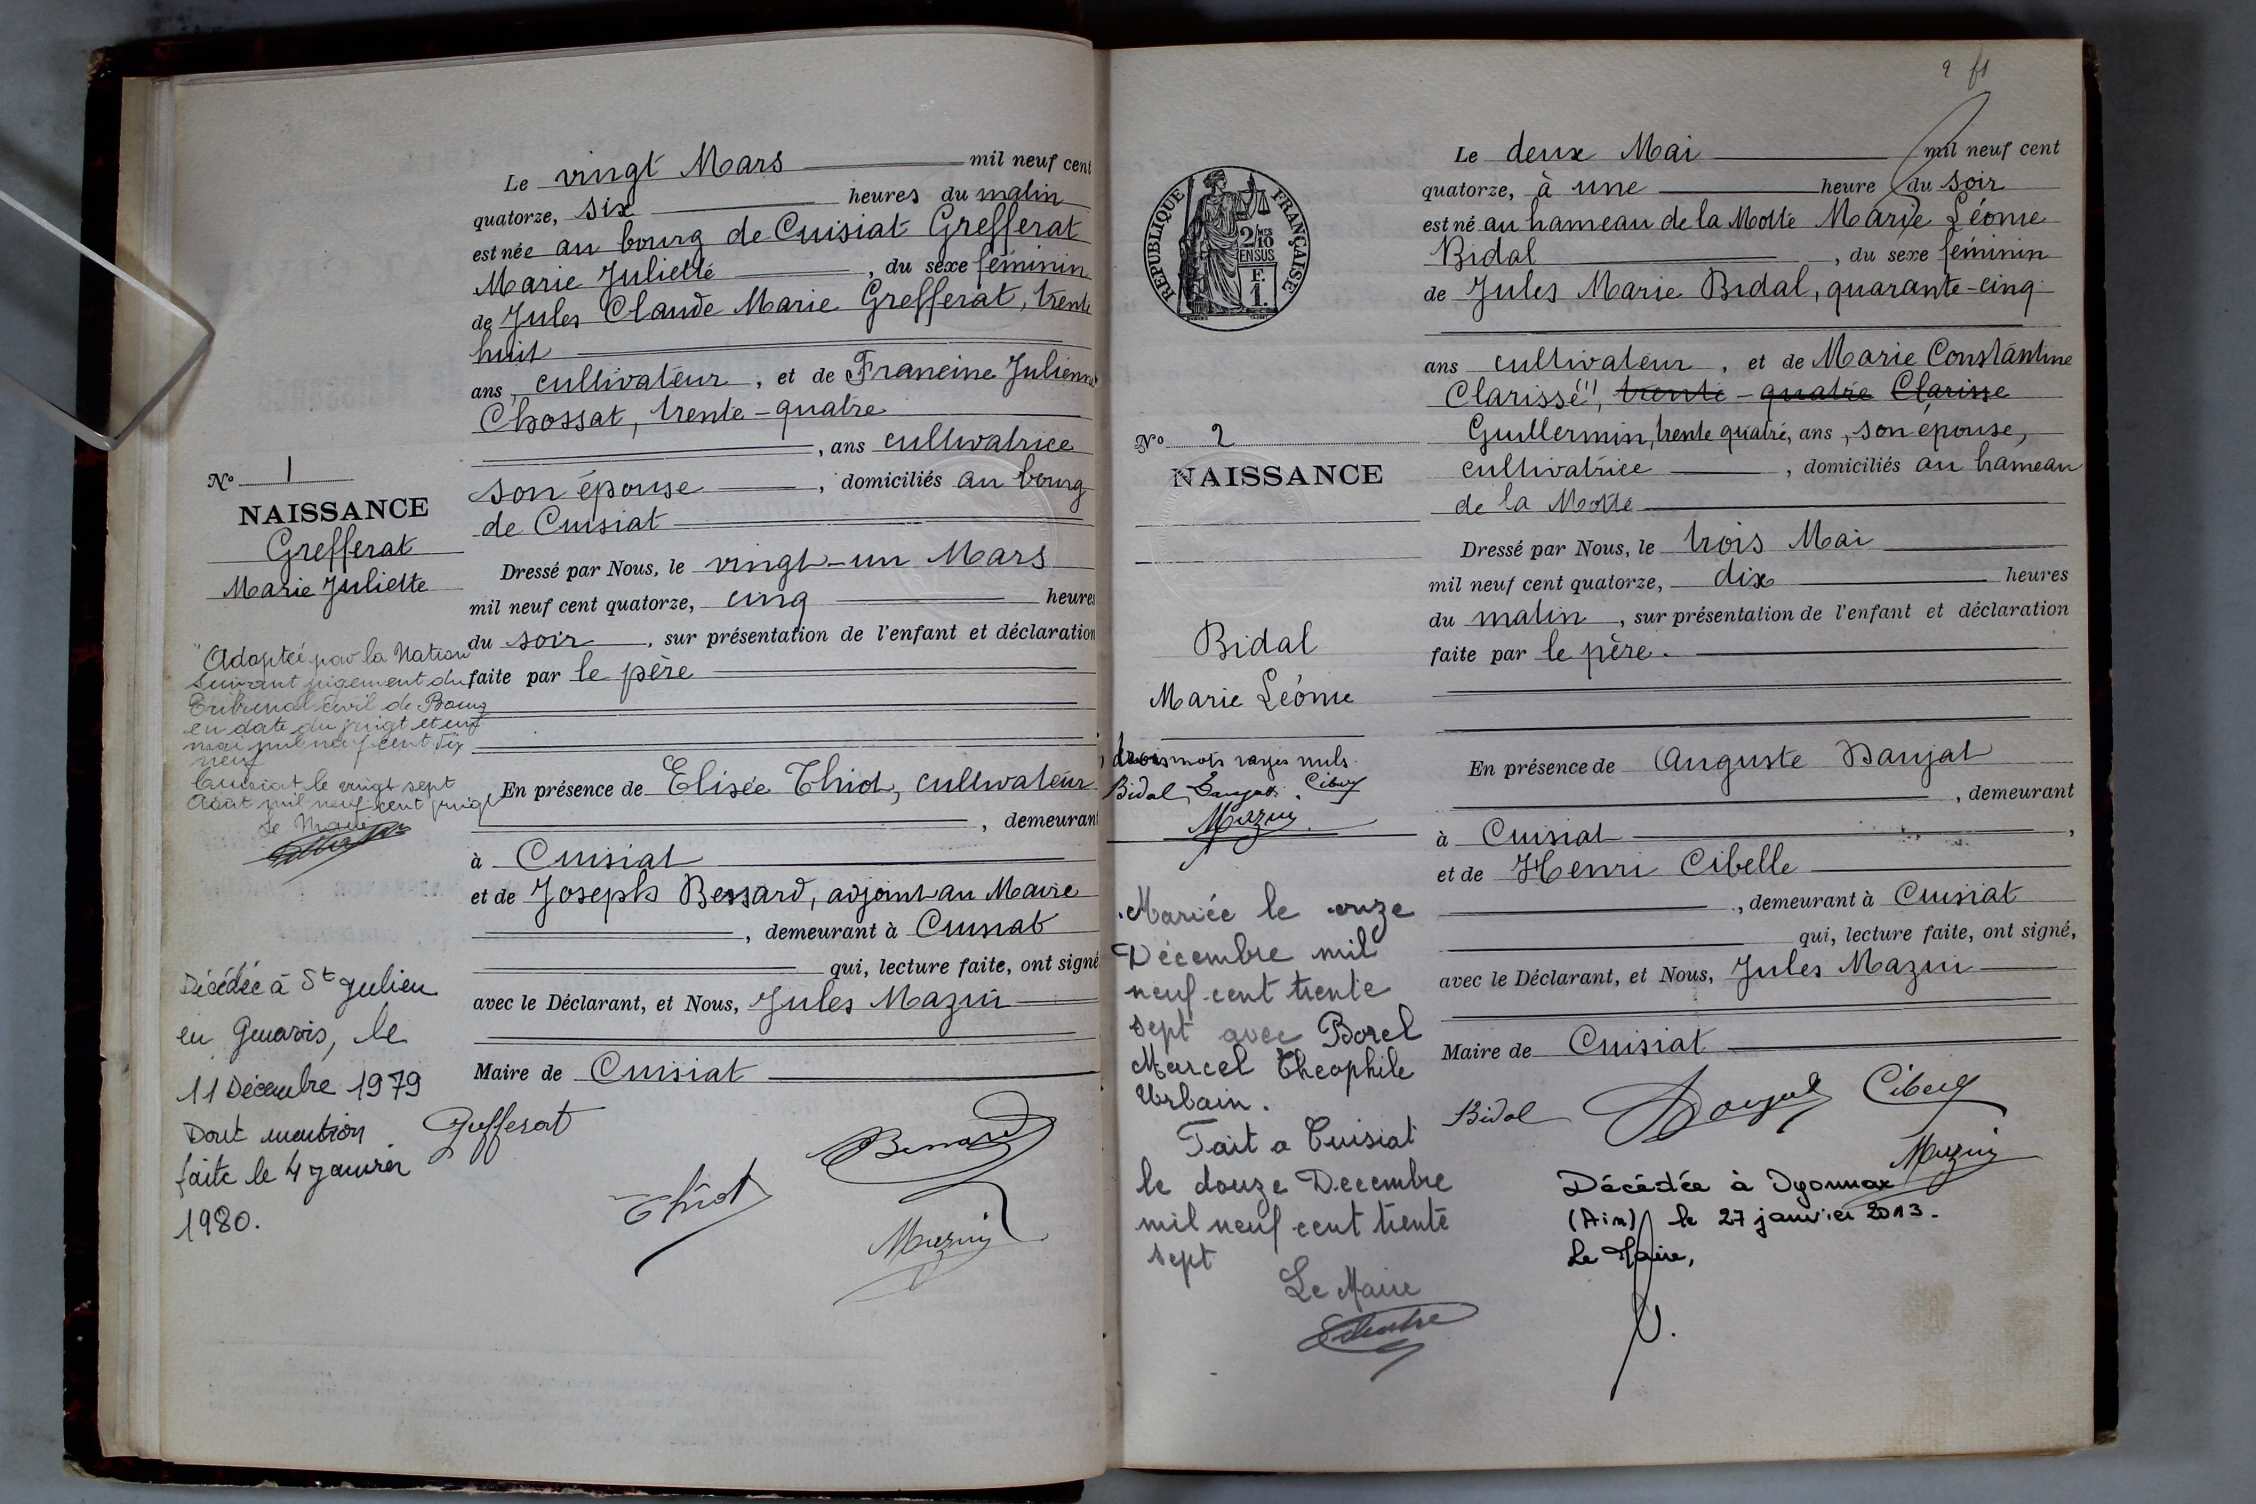 Le vingt Mars mil neuf cent
quatorze, six heures du matin
est née au bourg de Cuisiat Grefferat
Marie Juliette, du sexe féminin
de Jules Claude Marie Grefferat, trente
huit
ans, cultivateur, et de Francine Julienne
Chossat, trente-quatre
, ans cultivatrice
son épouse, domiciliés au bourg
de Cuisiat
Dressé par Nous, le vingt-un Mars
mil neuf cent quatorze, cinq heures
du soir, sur présentation de l'enfant et déclaration
faite par le père
En présence de Elisée Thiot, cultivateur
, demeurant
à Cuisiat
et de Joseph Bessard, adjoint au Maire
, demeurant à Cuisiat
qui, lecture faite, ont signé
avec le Déclarant, et Nous, Jules Mazuir
Maire de Cuisiat
Grefferat
Bessard
Thiot
Mazuir
No 1
NAISSANCE
Grefferat
Marie Juliette
Adoptée par la Nation
suivant jugement du
Tribunal civil de Bourg
en date du vingt et un
mai mil neuf cent dix
neuf
Cuisiat le vingt sept
Août mil neuf cent vingt
Le Maire
Décédée à St Julien
en Genevois, le
11 Décembre 1979
Dont mention
faite le 4 Janvier
1980.
2
RÉPUBLIQUE FRANÇAISE
2/10 MES
EN SUS
F.
1.
Le deux Mai mil neuf cent
quatorze, à une heure du soir
est né au hameau de la Motte Marie Léonie
Bidal, du sexe féminin
de Jules Marie Bidal, quarante-cinq
ans cultivateur, et de Marie Constantine
Clarisse (1), trente-quatre Clarisse
Guillermin, trente quatre, ans, son épouse,
cultivatrice, domiciliés au hameau
de la Motte
Dressé par Nous, le trois Mai
mil neuf cent quatorze, dix heures
du matin, sur présentation de l'enfant et déclaration
faite par le père.
En présence de Auguste Danjat
, demeurant
à Cuisiat,
et de Henri Cibelle
, demeurant à Cuisiat
qui, lecture faite, ont signé,
avec le Déclarant, et Nous, Jules Mazuir
Maire de Cuisiat
Bidal Danjat
Mazuir
Décédée à Oyonnax
(Ain) le 27 janvier 2013.
Le Maire,
No 2
NAISSANCE
Bidal
Marie Léonie
trois mots rayés nuls.
Bidal Danjat
Mazuir
Mariée le onze
Décembre mil
neuf cent trente
sept avec Borel
Marcel Théophile
Urbain.
Fait a Cuisiat
le douze Decembre
mil neuf cent trente
sept
Le Maire